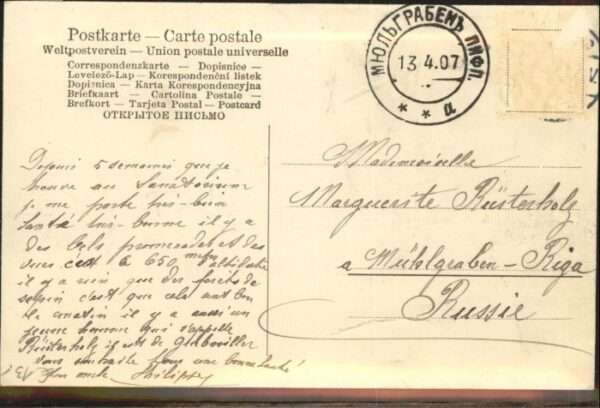 Postkarte — Carte postale
Weltpostverein — Union postale universelle
Correspondenzkarte — Dopisnice —
Levelező-Lap — Korespondenční listek
Dopisnica — Karta Korespondencyjna
Briefkaart — Cartolina Postale —
Brefkort — Tarjeta Postal — Postcard
ОТКРЫТОЕ ПИСЬМО
МЮЛЬГРАБЕНЪ ЛИФЛ.
13.4.07
* * а
Depuis 5 semaines que je
trouve au Sanatorium
je me porte très-bien
Santé très-bonne il y a
des bels promenades et des
vues c'est à 650 mètres d'altitude
il y a rien que des forêts de
sapin c'est que cela
ce matin il y a aussi un
jeune homme qui s'appelle
Rüsterholz il est de
vous souhaite bonne santé
Philippe
Mademoiselle
Marguerite Rüsterholz
a Mühlgraben-Riga
Russie